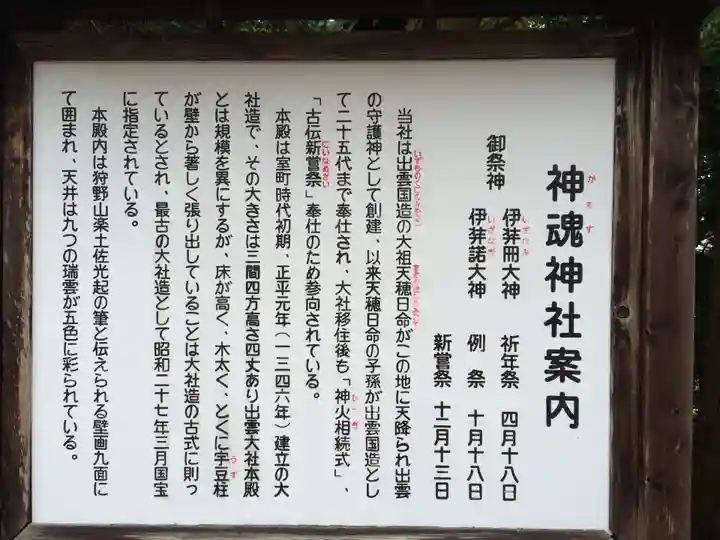 神魂神社案内
かもす
御祭神
伊弉冊大神
いざなみ
伊弉諾大神
いざなぎ
祈年祭 四月十八日
例祭 十月十八日
新嘗祭 十二月十三日
当社は出雲国造の大祖天穂日命がこの地に天降られ出雲
の守護神として創建、以来天穂日命の子孫が出雲国造とし
て二十五代まで奉仕され、大社移住後も「神火相続式」、
「古伝新嘗祭」奉仕のため参向されている。
にいなめさい
本殿は室町時代初期、正平元年(一三四六年)建立の大
社造で、その大きさは三間四方高さ四丈あり出雲大社本殿
とは規模を異にするが、床が高く、木太く、とくに宇豆柱
うず
が壁から著しく張り出していることは大社造の古式に則っ
ているとされ、最古の大社造として昭和二十七年三月国宝
に指定されている。
本殿内は狩野山楽土佐光起の筆と伝えられる壁画九面に
て囲まれ、天井は九つの瑞雲が五色に彩られている。